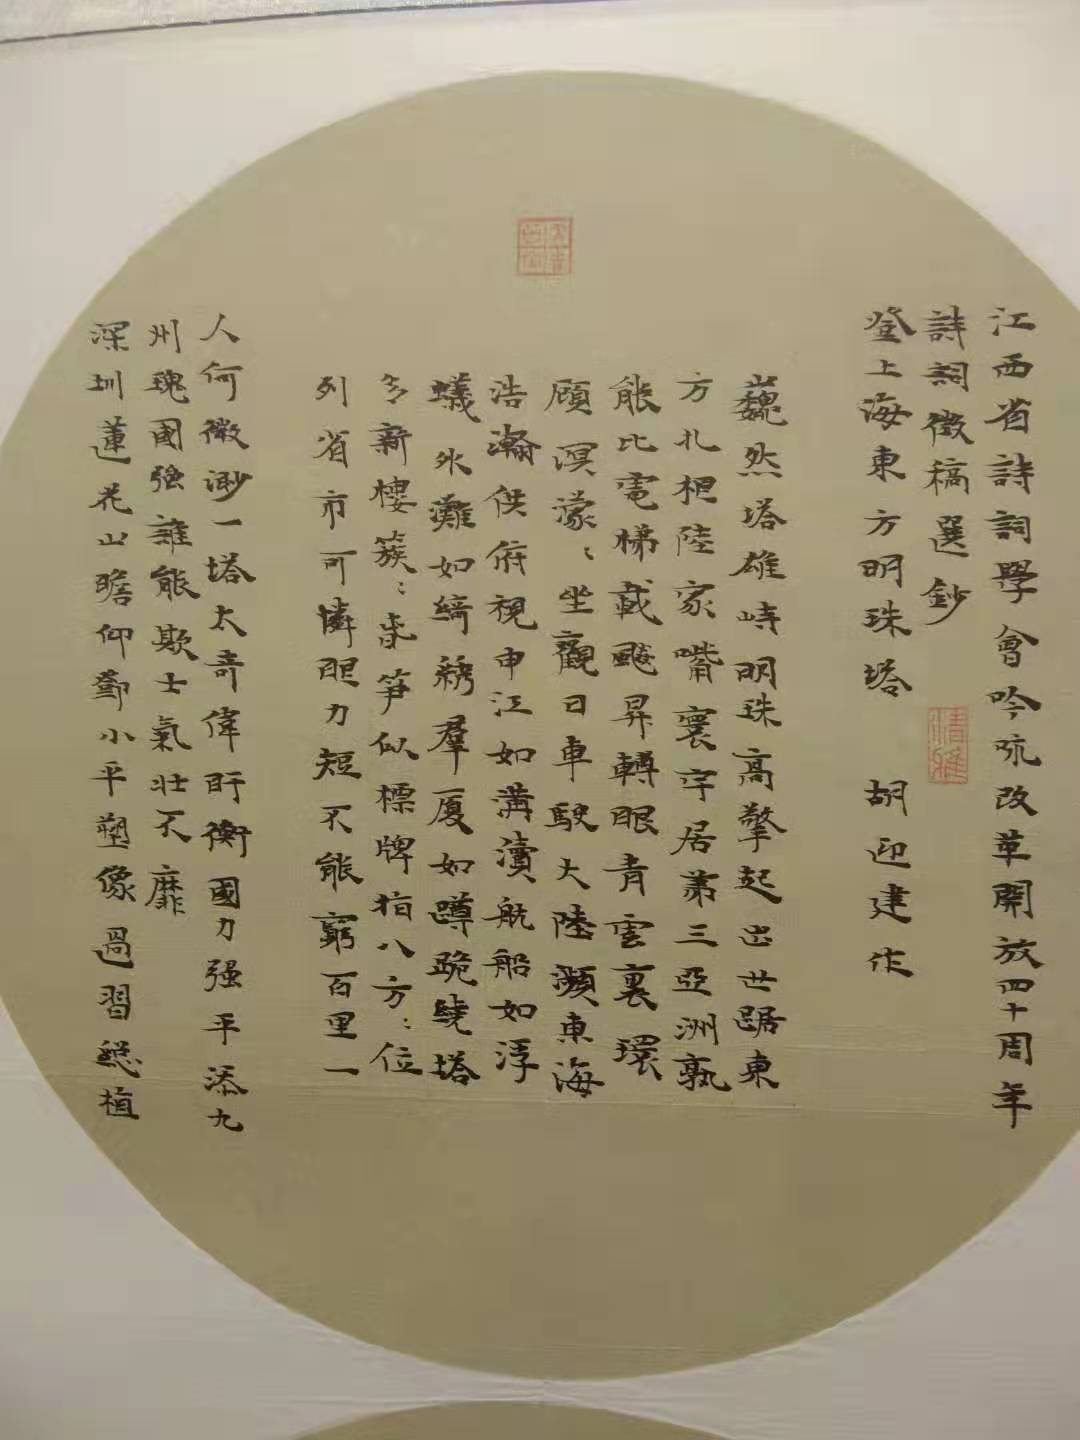 江西省詩詞學會吟疏改革開放四十周年
詩詞徵稿選鈔
登上海東方明珠塔 胡迎建作
巍然塔雄峙明珠高擎起出世踞東
方扎根陸家嘴寰宇居第三亞洲孰
能比電梯載飈昇轉眼青雲裏環
顧溟濛〻坐觀日車駛大陸瀕東海
浩瀚供俯視申江如溝瀆航船如浮
蟻外灘如綺綉羣厦如蹲跪繞塔
多新樓簇〻春筍似標牌指八方〻位
列省市可憐眼力短不能窮百里一
人何微渺一塔太奇偉盱衡國力强平添九
州瑰國强誰能欺士氣壯不靡
深圳蓮花山瞻仰鄧小平塑像過習總植
清雅